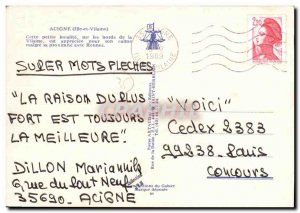 ACIGNE (Ille-et-Vilaine)
Cette petite localité, sur les bords de la
Vilaine, est appréciée pour son calme
malgré sa proximité avec Rennes.
SUPER MOTS FLECHES
"LA RAISON DU PLUS
FORT EST TOUJOURS
LA MEILLEURE".
DILLON
6, rue du Pont Neuf
35690 - ACIGNE
1989
2,20
"VOICI"
Cedex 2383
99238 - Paris
CONCOURS